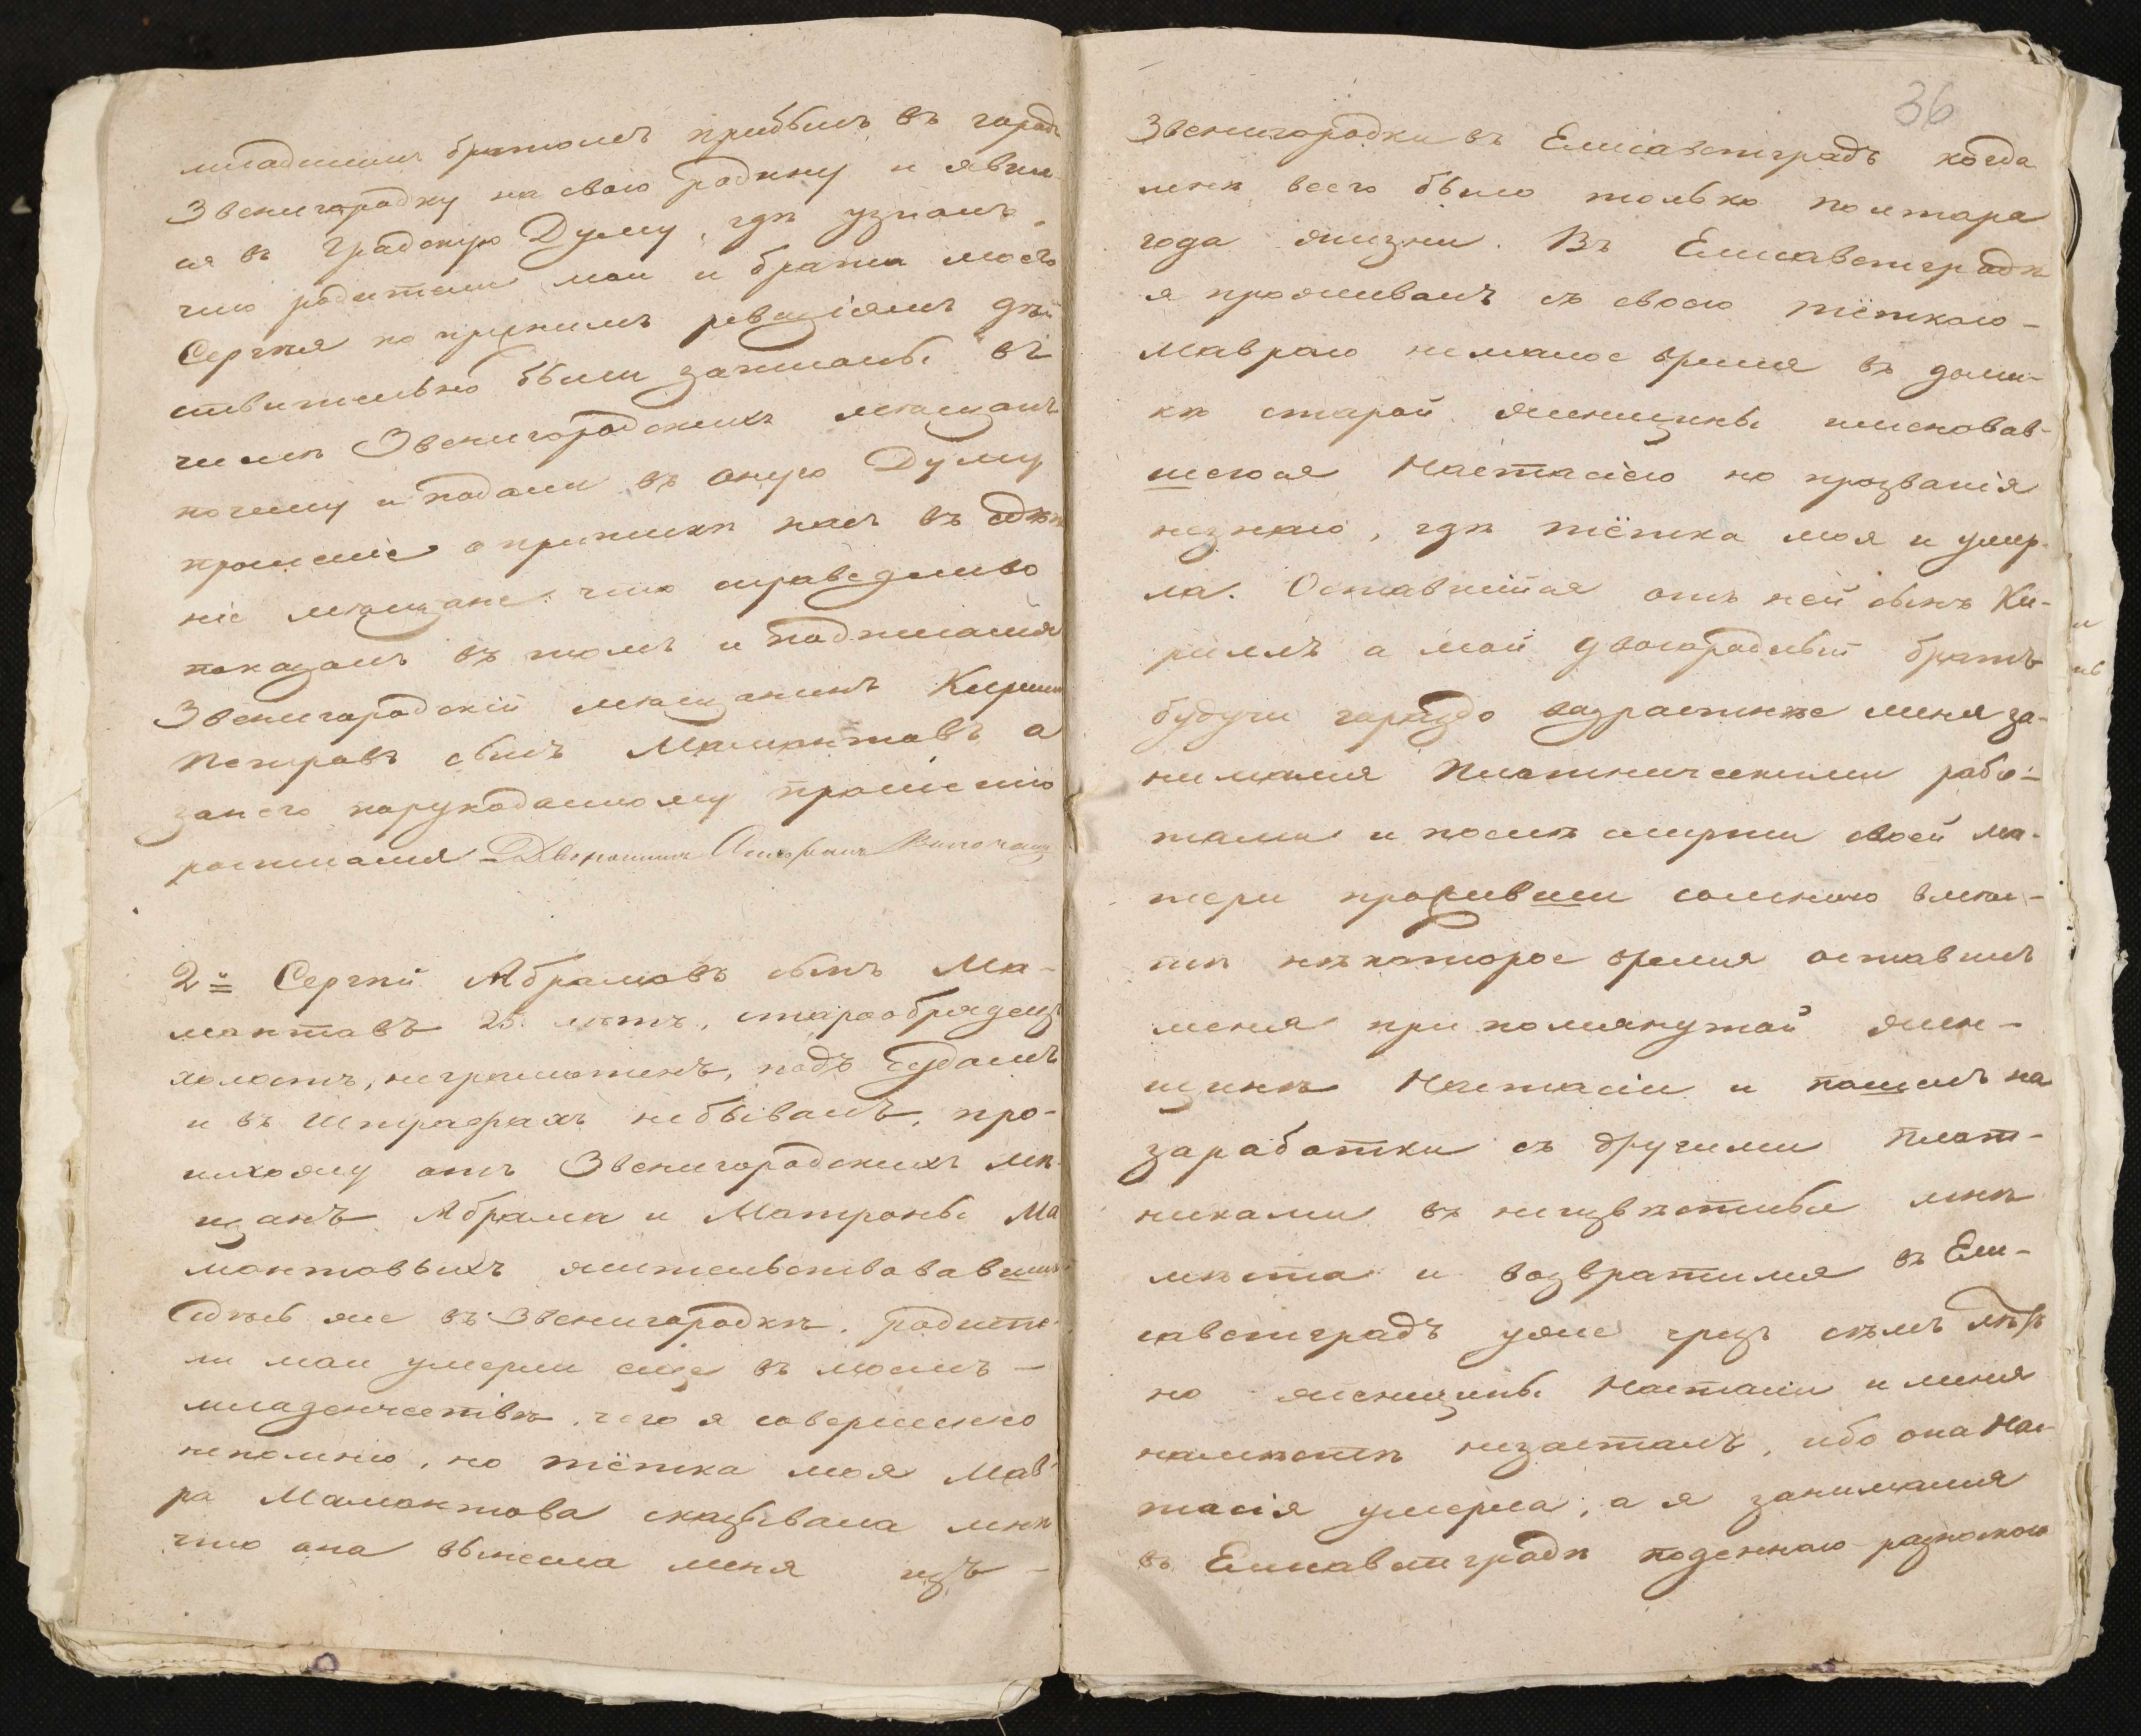 младшимъ братомъ прибылъ въ городъ
Звенигородку на свою родину и явил-
ся въ Градскую Думу, гдѣ узналъ
что родители мои и брата моего
Сергѣя по прежнимъ ревизіямъ дѣй
ствительно были записаны въ
числѣ Звенигородскихъ мѣщанъ
почему и подали въ оную Думу
прошеніе о припискѣ насъ въ
ніе мѣщане. что справедливо
показалъ въ томъ и подписался
Звенигородскій мѣщанинъ Кирилъ
Петровъ сынъ Мамонтовъ а
за него порукоданному прошенію
росписался Дворянинъ
2й Сергѣй Абрамовъ сынъ Ма-
монтовъ 25 лѣтъ, старообрядецъ
холостъ, неграмотенъ, подъ судомъ
и въ штрафахъ небывалъ, про-
исхожу отъ Звенигородскихъ мѣ-
щанъ Абрама и Матроны Ма
монтовыхъ жительствовавшихъ
сдѣсь же въ Звенигородкѣ. родите-
ли мои умерли еще въ моемъ -
младенчествѣ, чего я совершенно
непомню, но тётка моя Мав-
ра Мамонтова сказывала мнѣ
что она вынесла меня изъ -
36
Звенигородки въ Елисаветградъ когда
мнѣ всего было только полтара
года жизни. Въ Елисаветградѣ
я проживалъ съ своею тёткою -
Маврою немалое время въ доми-
кѣ старой женщины имяновав-
шеюся Настасіею но прозванія
незнаю, гдѣ тётка моя и умер-
ла. Оставшійся отъ ней сынъ Ки-
рилъ а мой двоюродный братъ
будучи гораздо возрастнѣе меня за-
нимался Плотническими рабо-
тами и послѣ смерти своей ма-
тери проживши сомною вмѣс-
тѣ нѣкоторое время оставилъ
меня при помянутой жен-
щинѣ Настасіи и пошелъ на
заработки съ другими плот-
никами въ неизвѣстныя мнѣ
мѣста и возвратился въ Ели-
саветградъ уже чрезъ семъ лѣтъ
но женщины Настасіи и меня
намѣстѣ незасталъ, ибо она Нас-
тасія умерла, а я занимался
въ Елисаветградѣ поденною разноскою